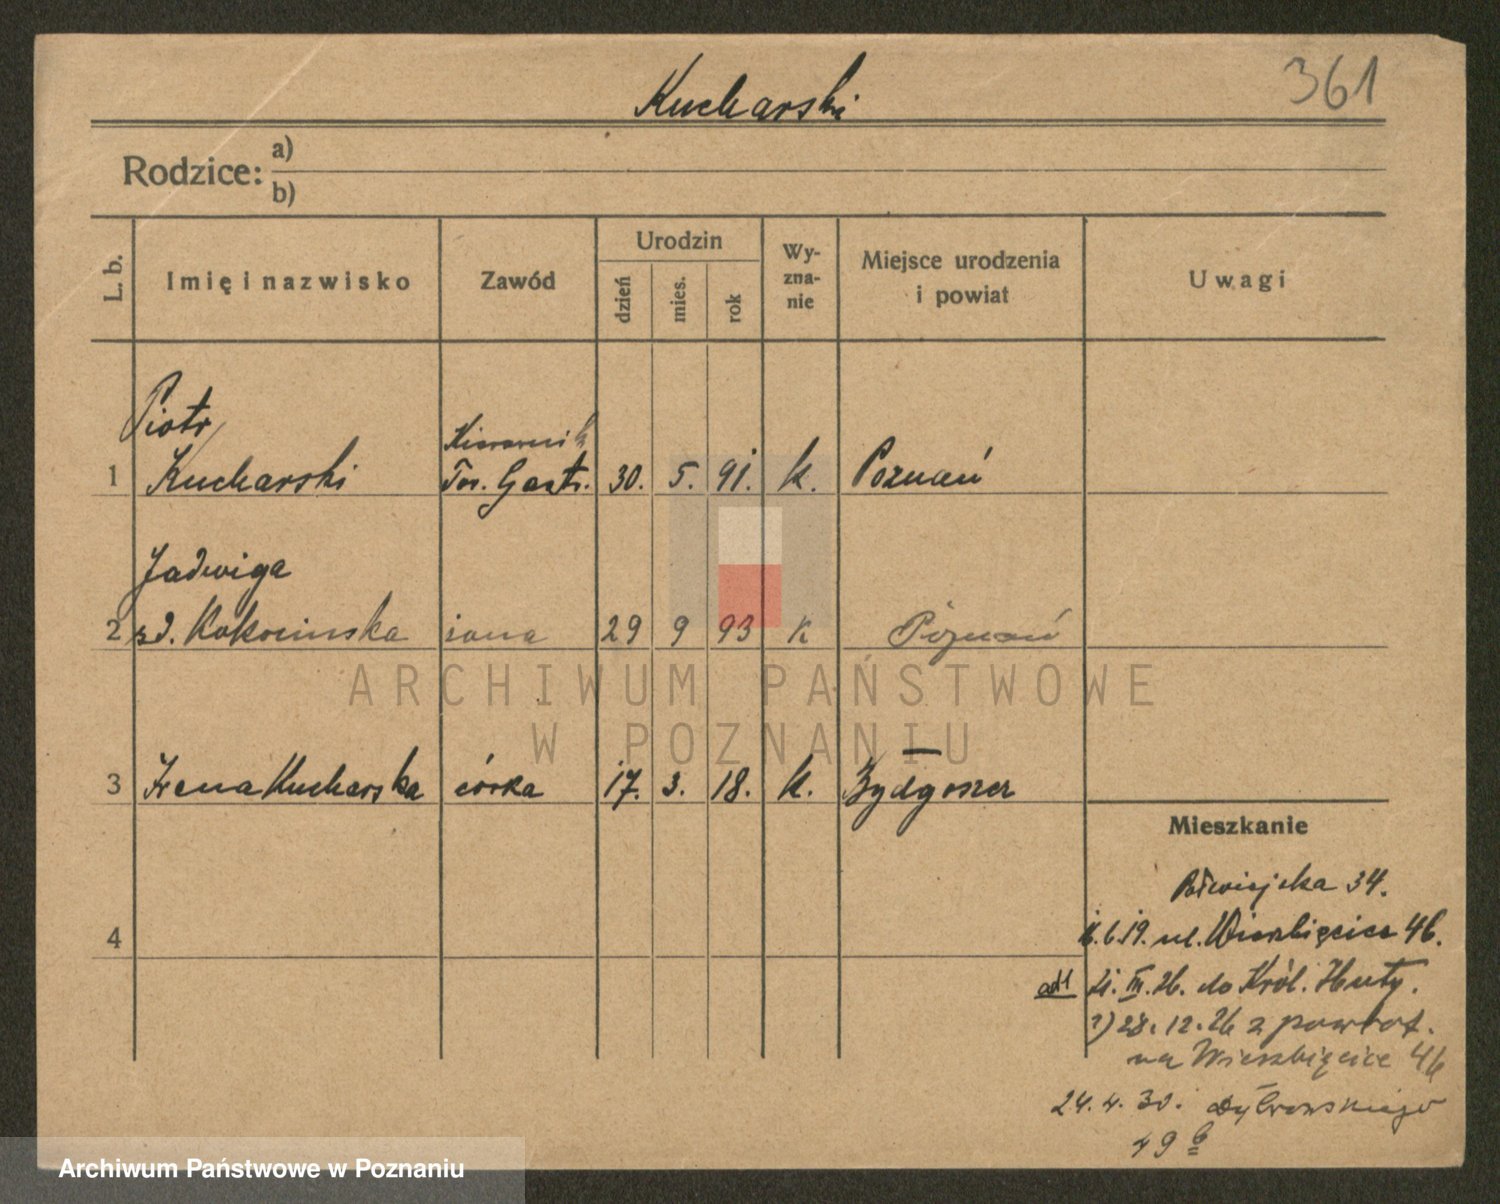 Kucharski
361
Rodzice: a)
b)
L. b.
Imię i nazwisko
Zawód
Urodzin
dzień
mies.
rok
Wy-
zna-
nie
Miejsce urodzenia
i powiat
Uwagi
Piotr
Kierownik
1 Kucharski Tow. 30. 5. 91. k. Poznań
Jadwiga
2 zd. Kokocinska żona 29 9 93 k Poznań
3 Irena Kucharska córka 17. 3. 18. k. Bydgoszcz
Mieszkanie
Półwiejska 34.
4
6.19. ul. Wierzbięcice 46.
III. 26. do Król. Huty.
28. 12. 26 z powrot.
na Wierzbięcice 46
24. 4. 30. Dąbrowskiego
49
ARCHIWUM PAŃSTWOWE
W POZNANIU
Archiwum Państwowe w Poznaniu